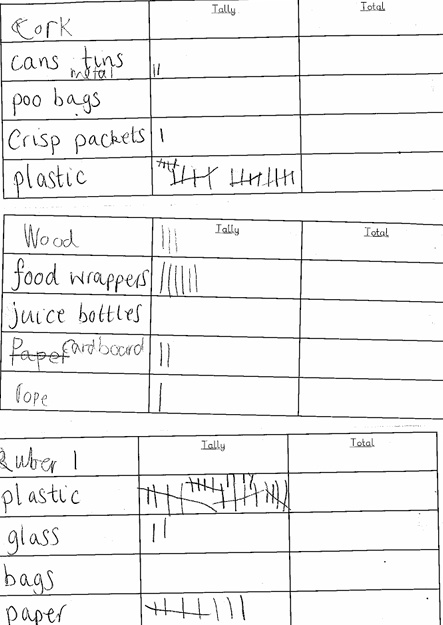 Tally Total
Cork
cans tins
metal
poo bags
Crisp packets
plastic
Tally Total
Wood
food wrappers
juice bottles
Paper cardboard
rope
Tally Total
Ruber 1
plastic
glass
bags
paper